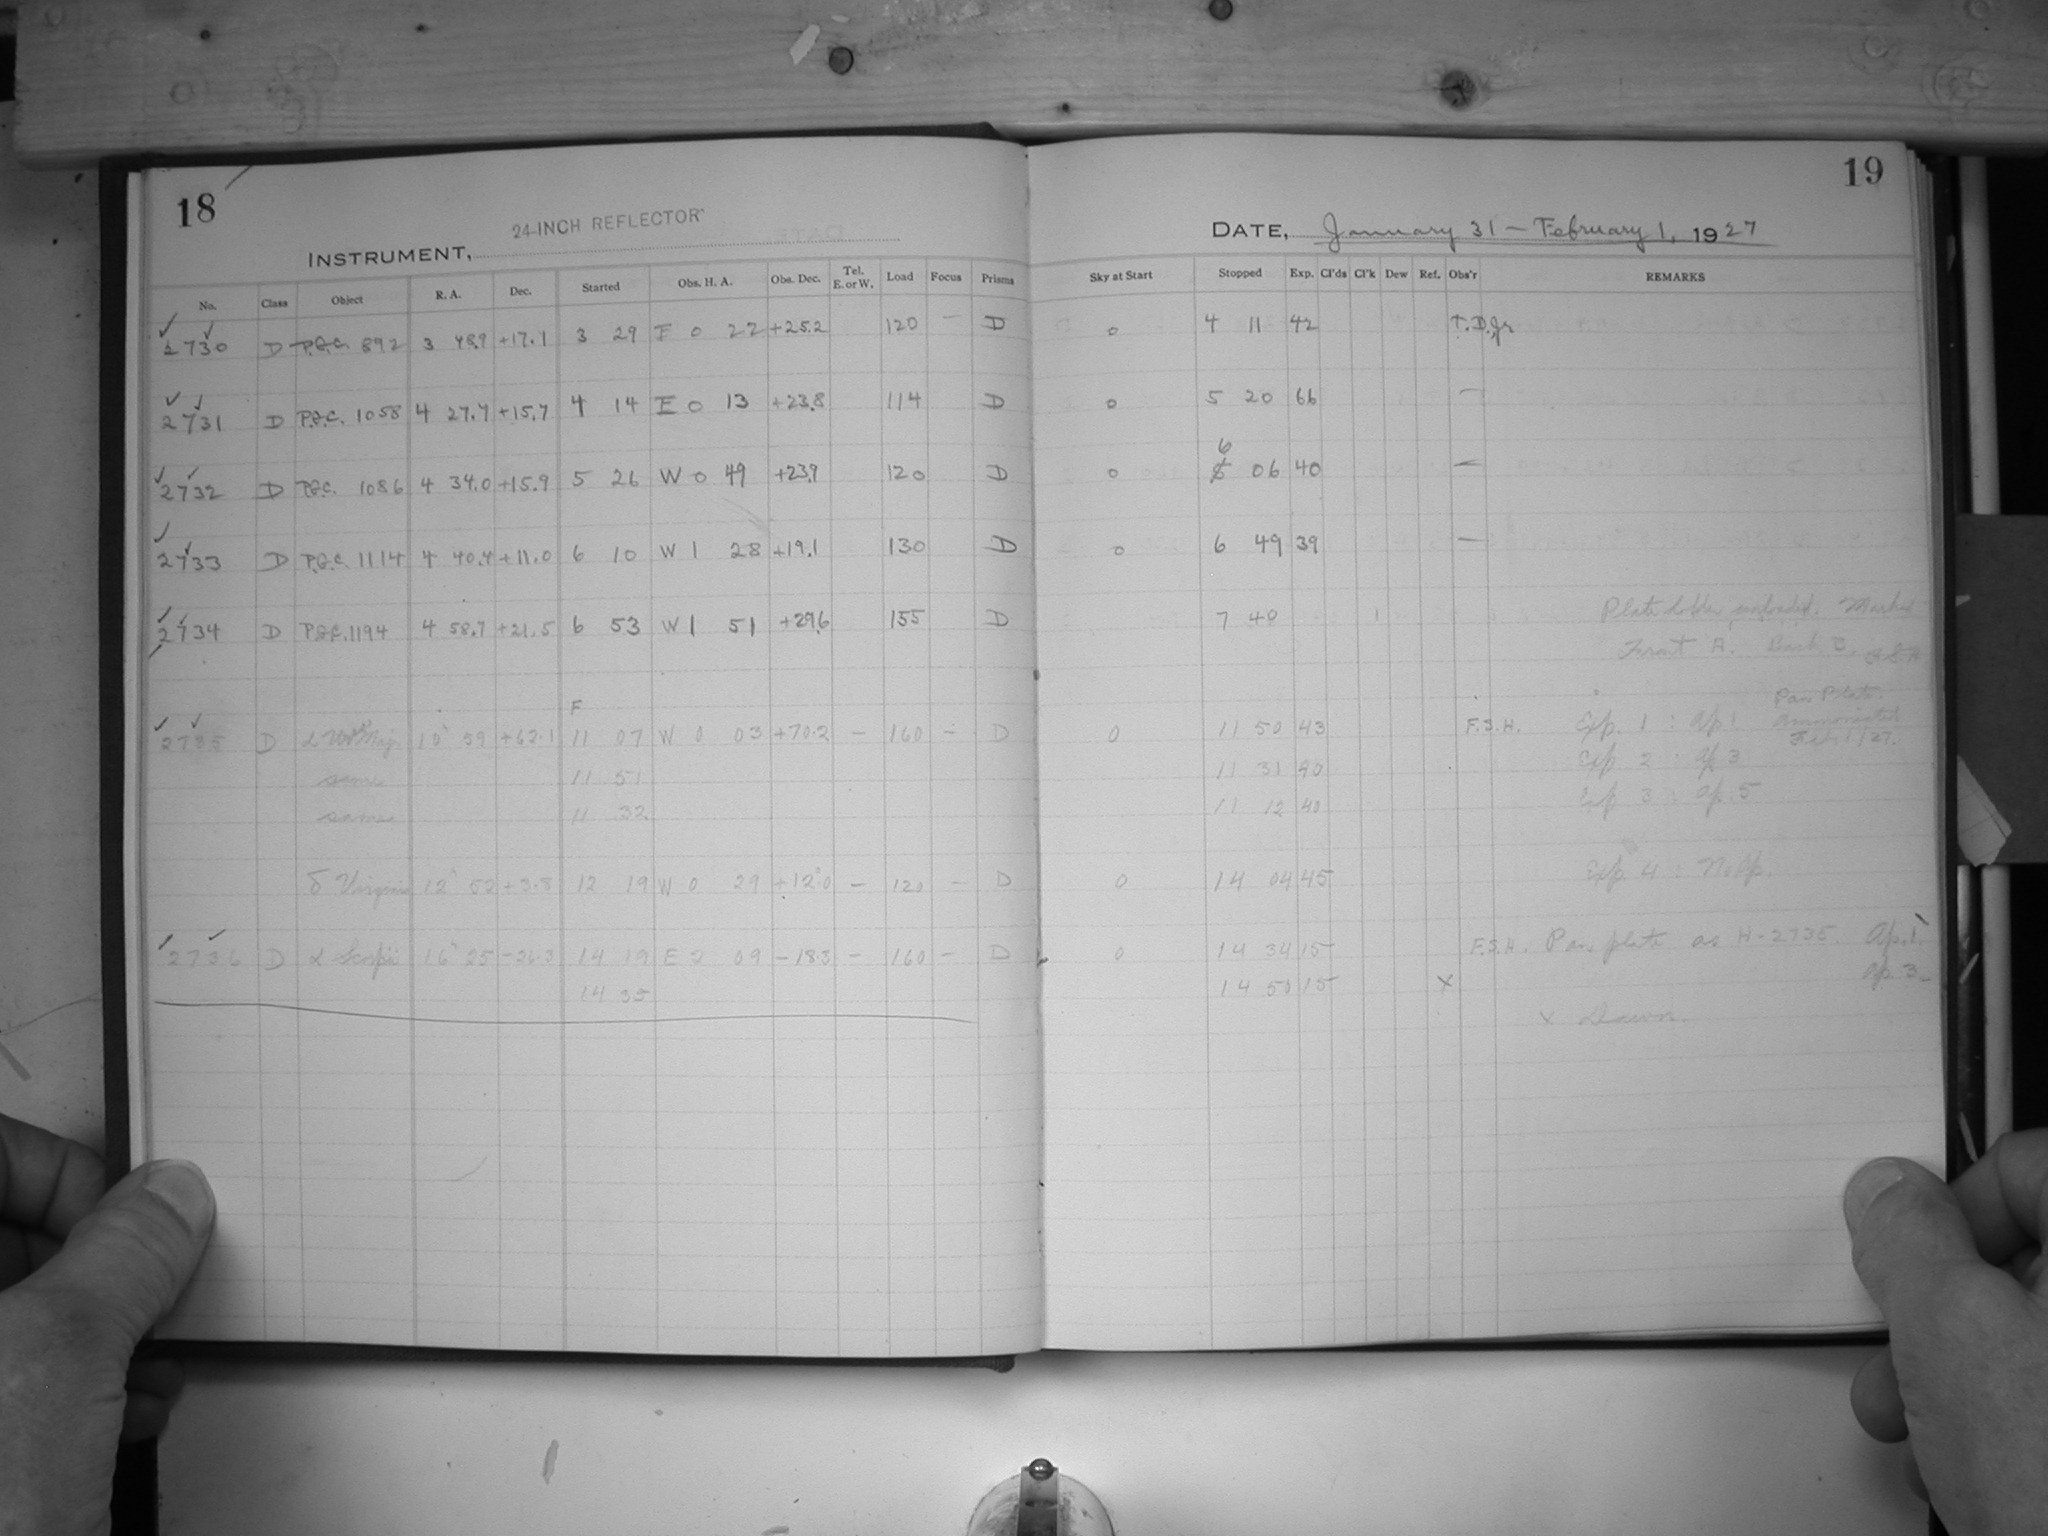 18
24-INCH REFLECTOR
INSTRUMENT,
No. Class Object R. A. Dec. Started Obs. H. A. Obs. Dec. Tel. E. or W. Load Focus Prisms
2730 D P.G.C. 892 3 48.9 +17.1 3 29 E 0 22 +25.2 120 — D
2731 D P.G.C. 1058 4 27.7 +15.7 4 14 E 0 13 +23.8 114 D
2732 D P.G.C. 1086 4 34.0 +15.9 5 26 W 0 49 +23.9 120 D
2733 D P.G.C. 1114 4 40.4 +11.0 6 10 W 1 28 +19.1 130 D
2734 D P.G.C. 1194 4 58.7 +21.5 6 53 W 1 51 +29.6 155 D
F
2735 D α Urs Maj 10 59 +62.1 11 07 W 0 03 +70.2 — 160 — D
same 11 51
same 11 32
δ Virginis 12 52 +3.8 12 19 W 0 29 +12°0 — 120 — D
2736 D α Scorpii 16 25 -26.3 14 19 E 09 -18.3 — 160 — D
14 35
19
DATE, January 31 - February 1, 1927
Sky at Start Stopped Exp. Cl'ds Cl'k Dew Ref. Obs'r REMARKS
0 4 11 42 T.D.Jr
0 5 20 66 —
6
0 06 40 —
0 6 49 39 —
7 40 Plate holder unloaded. Marked
Front A. Back B.
Pan Plate
0 11 50 43 F.S.H. Exp. 1 : Ap 1 ammoniated
Feb 1/27.
11 31 40 Exp 2 : Ap 3
11 12 40 Exp 3 : Ap. 5
0 14 04 45 Exp. 4 : No Ap.
0 14 34 15 F.S.H. Pan plate as H-2735. Ap. 1.
14 50 15 x Ap. 3
x Dawn.